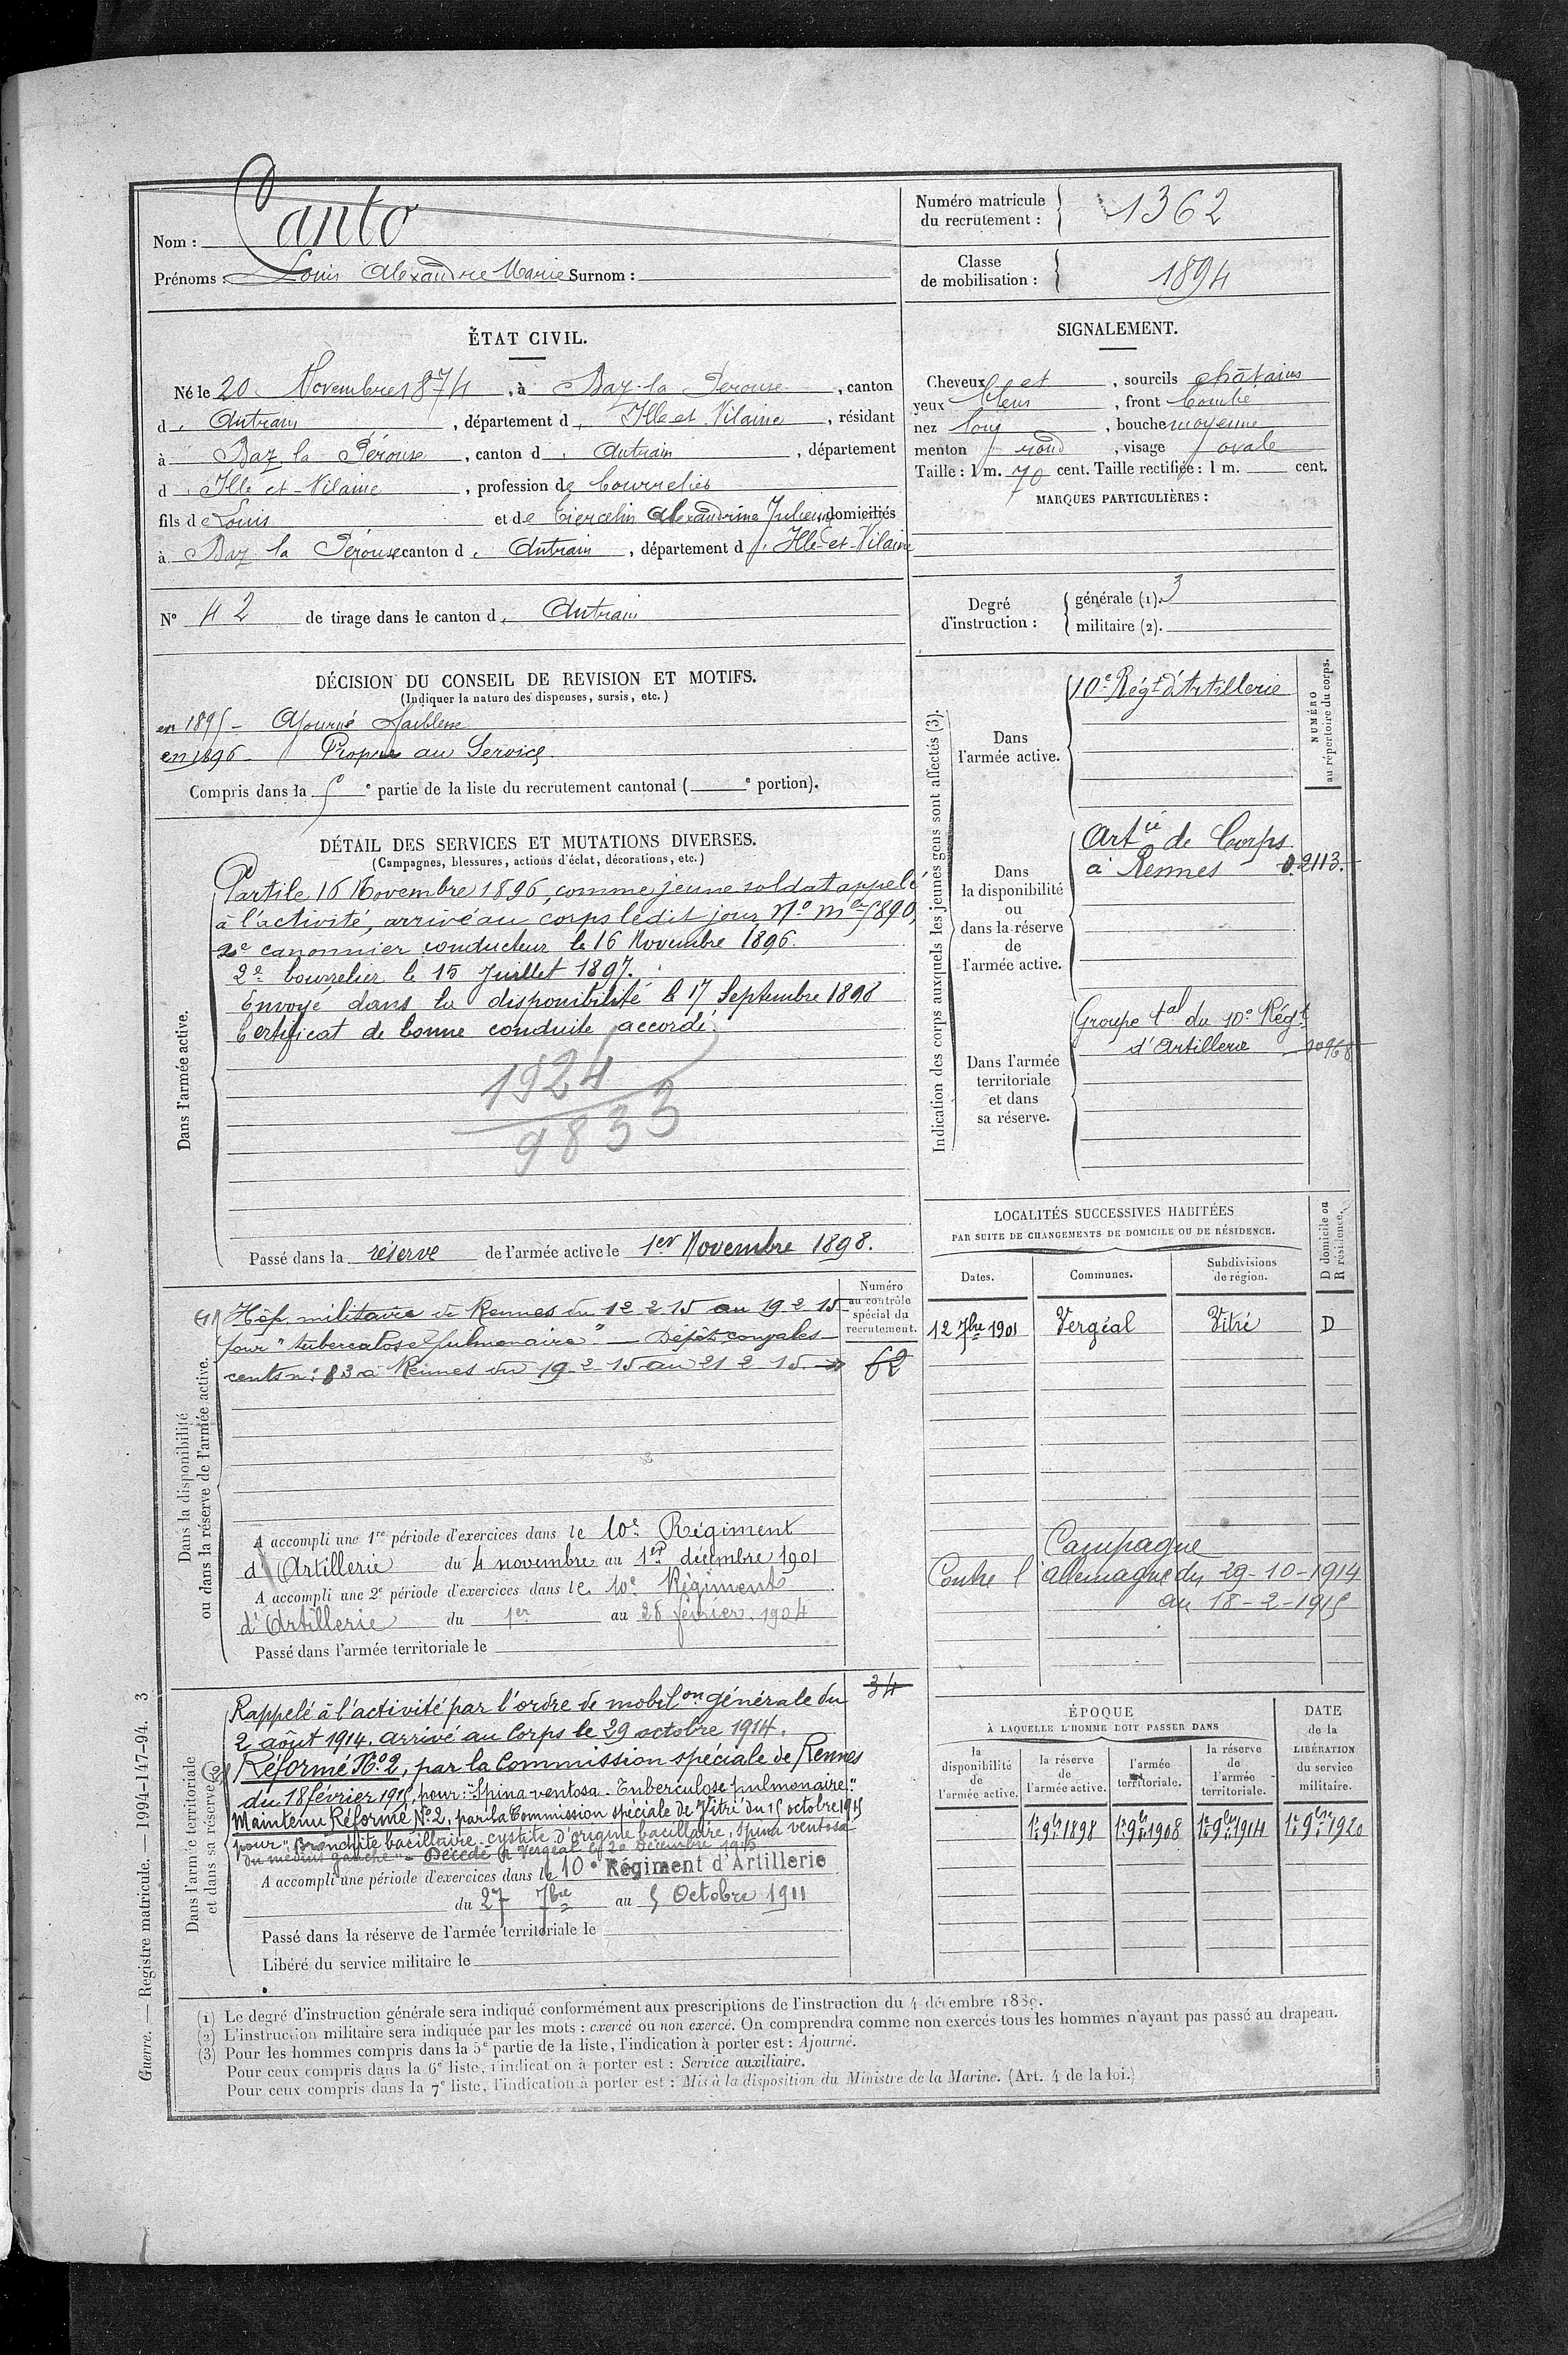 Nom : Canto
Prénoms : Louis Alexandre Marie Surnom :
Numéro matricule
du recrutement : 1362
Classe
de mobilisation : 1894
ÉTAT CIVIL.
Né le 20 Novembre 1874, à Baz-la Pérouse, canton
d'Antrain, département d'Ille et Vilaine, résidant
à Baz la Pérouse, canton d'Antrain, département
d'Ille et-Vilaine, profession de bourrelier
fils de Louis et de Tiercelin Alexandrine Julienne domiciliés
à Baz la Pérouse canton d'Antrain, département d'Ille-et-Vilaine
N° 42 de tirage dans le canton d'Antrain
SIGNALEMENT.
Cheveux et, sourcils châtains
yeux bleus, front bombé
nez long, bouche moyenne
menton rond, visage ovale
Taille : 1 m. 70 cent. Taille rectifiée : 1 m. cent.
MARQUES PARTICULIÈRES :
Degré
d'instruction :
générale (1). 3
militaire (2).
DÉCISION DU CONSEIL DE REVISION ET MOTIFS.
(Indiquer la nature des dispenses, sursis, etc.)
en 1895 - Ajourné faiblesse
en 1896 - Propre au Service
Compris dans la e partie de la liste du recrutement cantonal ( e portion).
DÉTAIL DES SERVICES ET MUTATIONS DIVERSES.
(Campagnes, blessures, actions d'éclat, décorations, etc.)
Dans l'armée active.
Parti le 16 Novembre 1896, comme jeune soldat appelé
à l'activité, arrivé au corps ledit jour, N° mle 5890,
2e canonnier conducteur le 16 Novembre 1896.
2e bourrelier le 15 Juillet 1897.
Envoyé dans la disponibilité le 17 Septembre 1898
Certificat de bonne conduite accordé
1924
9833
Passé dans la réserve de l'armée active le 1er Novembre 1898.
Indication des corps auxquels les jeunes gens sont affectés (3).
NUMÉRO
au répertoire du corps.
Dans
l'armée active.
10e Régt d'Artillerie
Dans
la disponibilité
ou
dans la réserve
de
l'armée active.
Artie de Corps
à Rennes 0.2113.
Dans l'armée
territoriale
et dans
sa réserve.
Groupe tal du 10e Régt
d'Artillerie
LOCALITÉS SUCCESSIVES HABITÉES
PAR SUITE DE CHANGEMENTS DE DOMICILE OU DE RÉSIDENCE.
Dates. Communes. Subdivisions
de région. D domicile ou
R résidence.
12 7bre 1901 Vergéal Vitré D
Campagne
Contre l'allemagne du 29-10-1914
au 18-2-1915
Dans la disponibilité
ou dans la réserve de l'armée active.
Numéro
au contrôle
spécial du
recrutement.
62
(1) Hôp. militaire de Rennes du 12 2 15 au 19 2 15
pour "tuberculose pulmonaire" — Dépôt convales
cents n: 83 à Rennes du 19-2-15 au 21 2 15.
A accompli une 1re période d'exercices dans le 10e Régiment
d'Artillerie du 4 novembre au 1er décembre 1901
A accompli une 2e période d'exercices dans le 10e Régiment
d'Artillerie du 1er au 28 février 1904
Passé dans l'armée territoriale le
Dans l'armée territoriale
et dans sa réserve.
34
Rappelé à l'activité par l'ordre de mobilon générale du
2 août 1914. arrivé au Corps le 29 octobre 1914.
(2) Réformé N°2, par la Commission spéciale de Rennes
du 18 février 1915, pour: "Spina ventosa. Tuberculose pulmonaire."
Maintenu Réformé N°2, par la Commission spéciale de Vitré du 15 octobre 1915
pour: "Bronchite bacillaire - cystite d'origine bacillaire, spina ventosa
du médius gauche" - Décédé à Vergéal le 20 décembre 1915
A accompli une période d'exercices dans le 10e Régiment d'Artillerie
du 27 7bre au 5 Octobre 1911
Passé dans la réserve de l'armée territoriale le
Libéré du service militaire le
ÉPOQUE
À LAQUELLE L'HOMME DOIT PASSER DANS
DATE
de la
LIBÉRATION
du service
militaire.
la
disponibilité
de
l'armée active.
la réserve
de
l'armée active.
l'armée
territoriale.
la réserve
de
l'armée
territoriale.
1er 9bre 1898 1er 9bre 1908 1er 9bre 1914 1er 9bre 1920
(1) Le degré d'instruction générale sera indiqué conformément aux prescriptions de l'instruction du 4 décembre 1889.
(2) L'instruction militaire sera indiquée par les mots : exercé ou non exercé. On comprendra comme non exercés tous les hommes n'ayant pas passé au drapeau.
(3) Pour les hommes compris dans la 5e partie de la liste, l'indication à porter est : Ajourné.
Pour ceux compris dans la 6e liste, l'indication à porter est : Service auxiliaire.
Pour ceux compris dans la 7e liste, l'indication à porter est : Mis à la disposition du Ministre de la Marine. (Art. 4 de la loi.)
Guerre. — Registre matricule. — 1994-147-94. 3